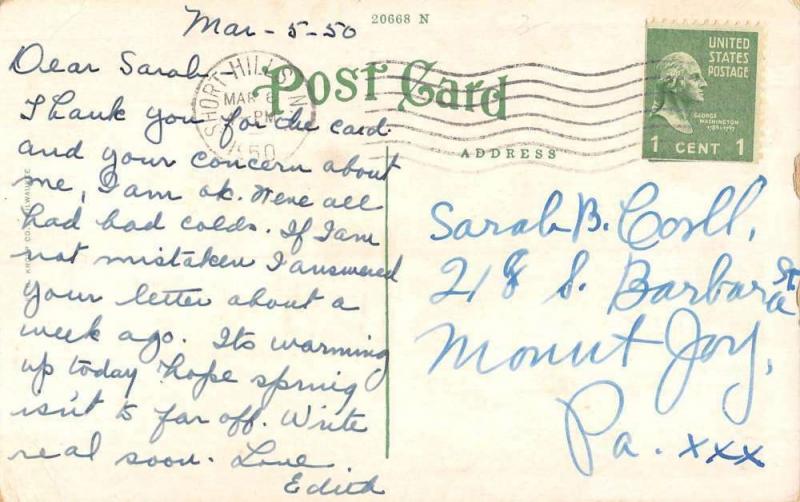 Mar-5-50
20668 N
Dear Sarah-
Thank you for the card
and your concern about
me, I am ok. Weve all
had bad colds. If I am
not mistaken I answered
your letter about a
week ago. Its warming
up today hope spring
isn't to far off. Write
real soon. Love
Edith
SHORT HILLS N.
MAR 6
PM
1950
Post Card
ADDRESS
UNITED
STATES
POSTAGE
GEORGE
WASHINGTON
1789-1797
1 CENT 1
Sarah B.
218 S. Barbara St
Mount Joy,
Pa. xxx
KROPP CO., MILWAUKEE